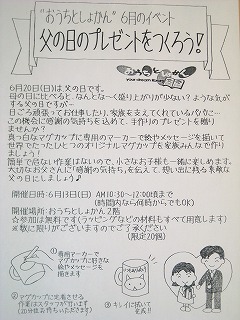 "おうちとしょかん" 6月のイベント
父の日のプレゼントをつくろう！
おうちとしょかん
your dream
6月20日(日)は父の日です。
母の日に比べると、なんとな〜く盛り上がりが少ない？ような気が
する父の日ですが…
日ごろ頑張ってお仕事したり、家族を支えてくれているパパに…
この機会に感謝の気持ちを込めて、手作りのプレゼントを贈り
ませんか？
真っ白なマグカップに専用のマーカーで絵やメッセージを描いて
世界でたったひとつのオリジナルマグカップを家族みんなで作り
ましょう！
簡単で危ない作業はないので、小さなお子様も一緒に楽しめます。
大切なお父さんに「感謝の気持ち」を伝えて、想い出に残る素敵な
父の日にしましょう♪
開催日時：6月13日(日) AM10:30〜12:00頃まで
(時間内なら何時からでもOK)
開催場所：おうちとしょかん 2階
☆参加は無料です(ラッピングなどの材料もすべて用意します)
※数に限りがございますのでご了承ください
(限定20個)
①専用マーカーで
マグカップに好きな
絵やメッセージを
描きます
②マグカップに定着させる
作業はスタッフが行います
(20分ほどお待ちいただきます)
③キレイに拭いて
完成！！